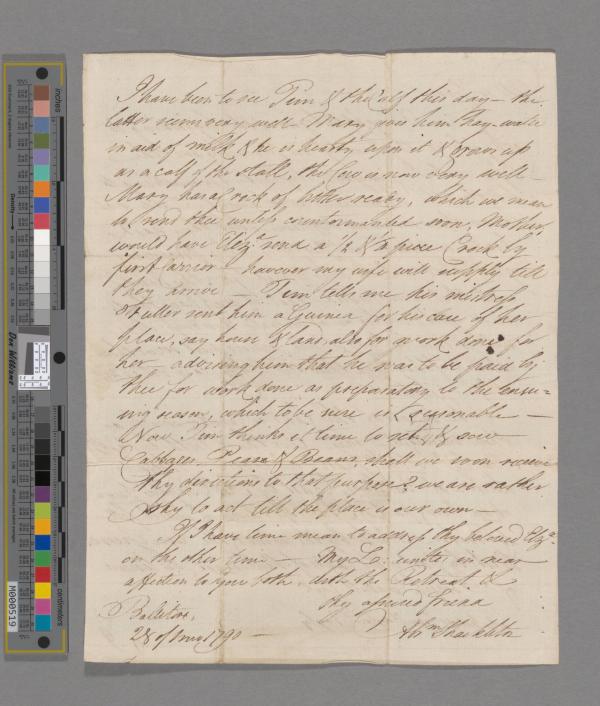 I have been to see Tim & the calf this day – the
latter seems very well – Mary gives him Hay-water
in aid of milk & he is hearty upon it & grows up
as a calf of the stall, the Cow is now very well –
Mary has a Crock of butter ready, which we mean
to send thee unless countermanded soon, Mother
would have Eliz.a send a piece Crock by
first carrier – however my wife will supply till
they arrive – Tim tells me his mistress
Fuller sent him a Guinea for his care of her
place, say house & land, also for work done for
her – advising him that he was to be paid by
thee for work done as preparatory to the ensu=
ing season, which to be sure is reasonable –
Now Tim thinks it time to set & sow
Cabbages, Pease & Beans, shall we soon receive
thy directions to that purpose? we are rather
shy to act till the place is our own –
If I have time mean to address thy beloved Eliz.a
on the other – My L: unites in near
affection to you both, with the Retreat, &
thy assured friend
Ballitore,
28 of 1790 –
Abm Shackleton
inches
centimeters
Don Williams
M000519